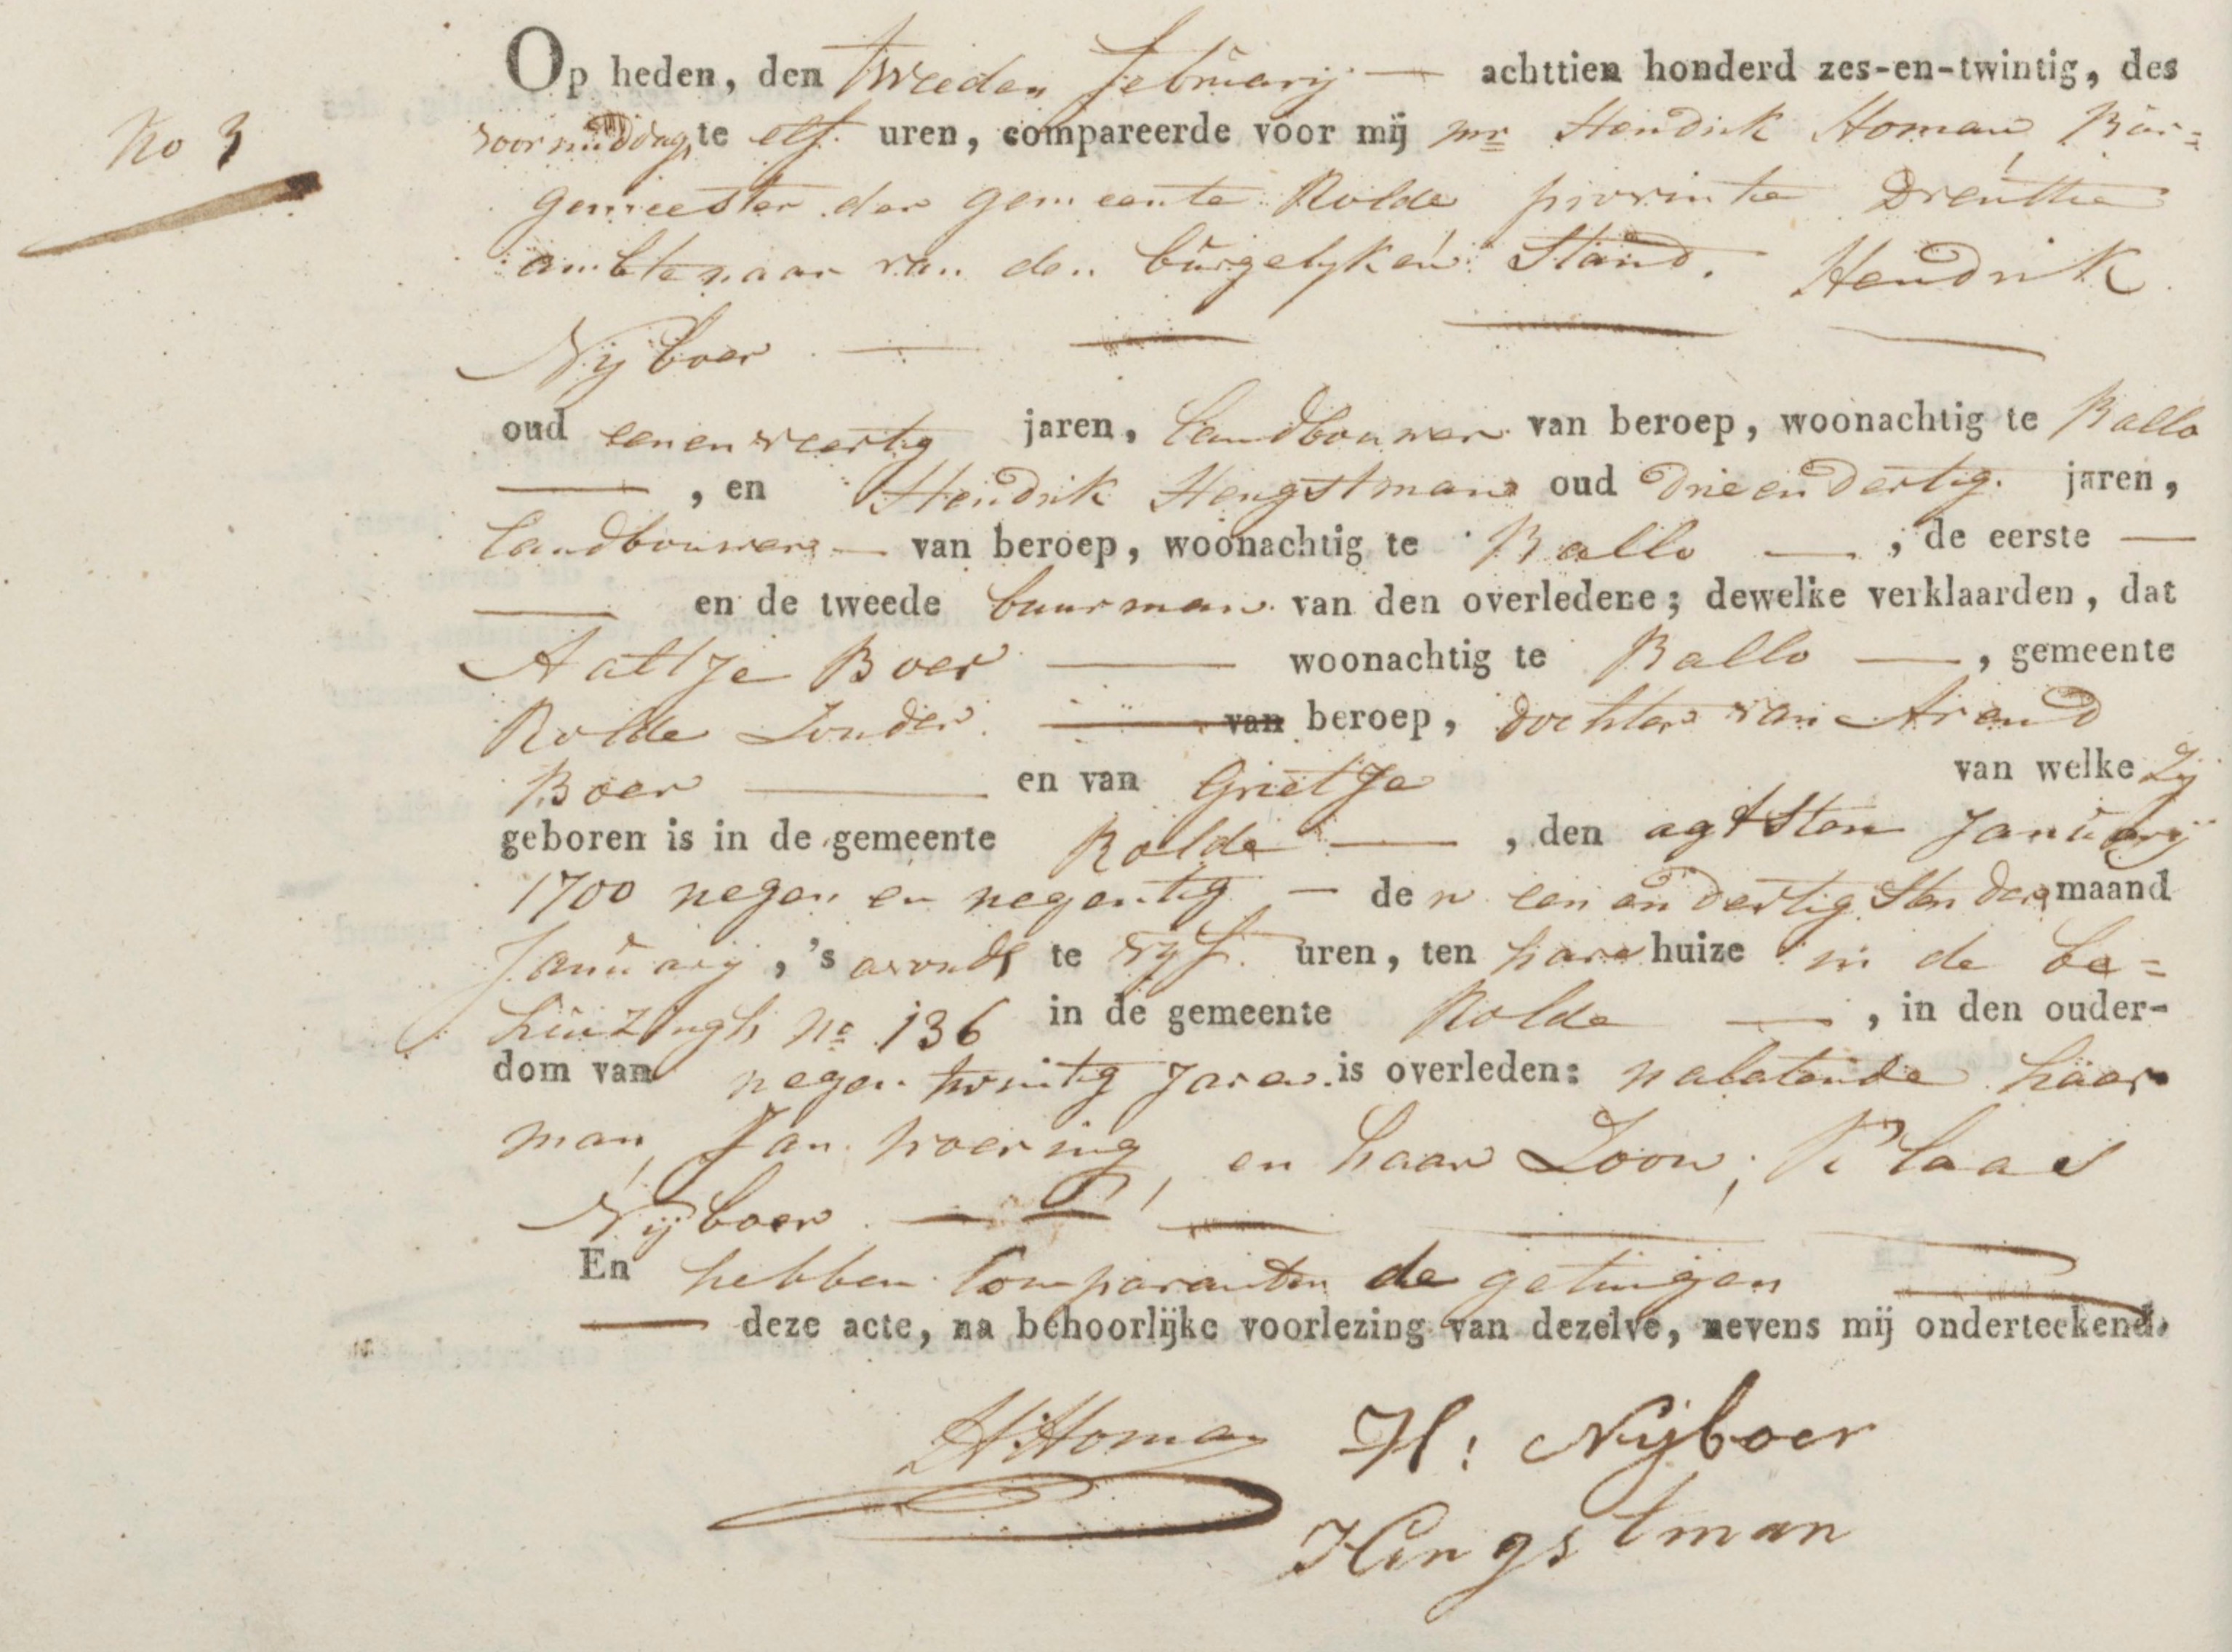 Op heden, den tweeden februarij — achttien honderd zes-en-twintig, des
No 3
voormiddags te elf uren, compareerde voor mij mr Hendrik Homan Bur=
gemeester der gemeente Rolde provintie Drenthe
ambtenaar van den burgelyken Stand. Hendrik
Nijboer — — — —
oud eenenveertig jaren, landbouwer van beroep, woonachtig te Ballo
—, en Hendrik Hengstman oud drieendertig jaren,
landbouwer — van beroep, woonachtig te Ballo —, de eerste —
— en de tweede buurman van den overledene; dewelke verklaarden, dat
Aaltje Boer — woonachtig te Ballo —, gemeente
Rolde Zonder — van beroep, dochter van Arend
Boer — en van Grietje van welke Zij
geboren is in de gemeente Rolde —, den agtsten January
1700 negen en negentig — den een en dertigsten der maand
January, 's avonds te vyf uren, ten hare huize in de be=
huizingh No 136 in de gemeente Rolde —, in den ouder-
dom van negen twintig Jaren is overleden: nalatende haar
man, Jan, en haar Zoon, Klaas
Nijboer — — — — —
En hebben Comparanten de getuigen —
— deze acte, na behoorlijke voorlezing van dezelve, nevens mij onderteekend.
H Homan H: Nijboer
Hengstman